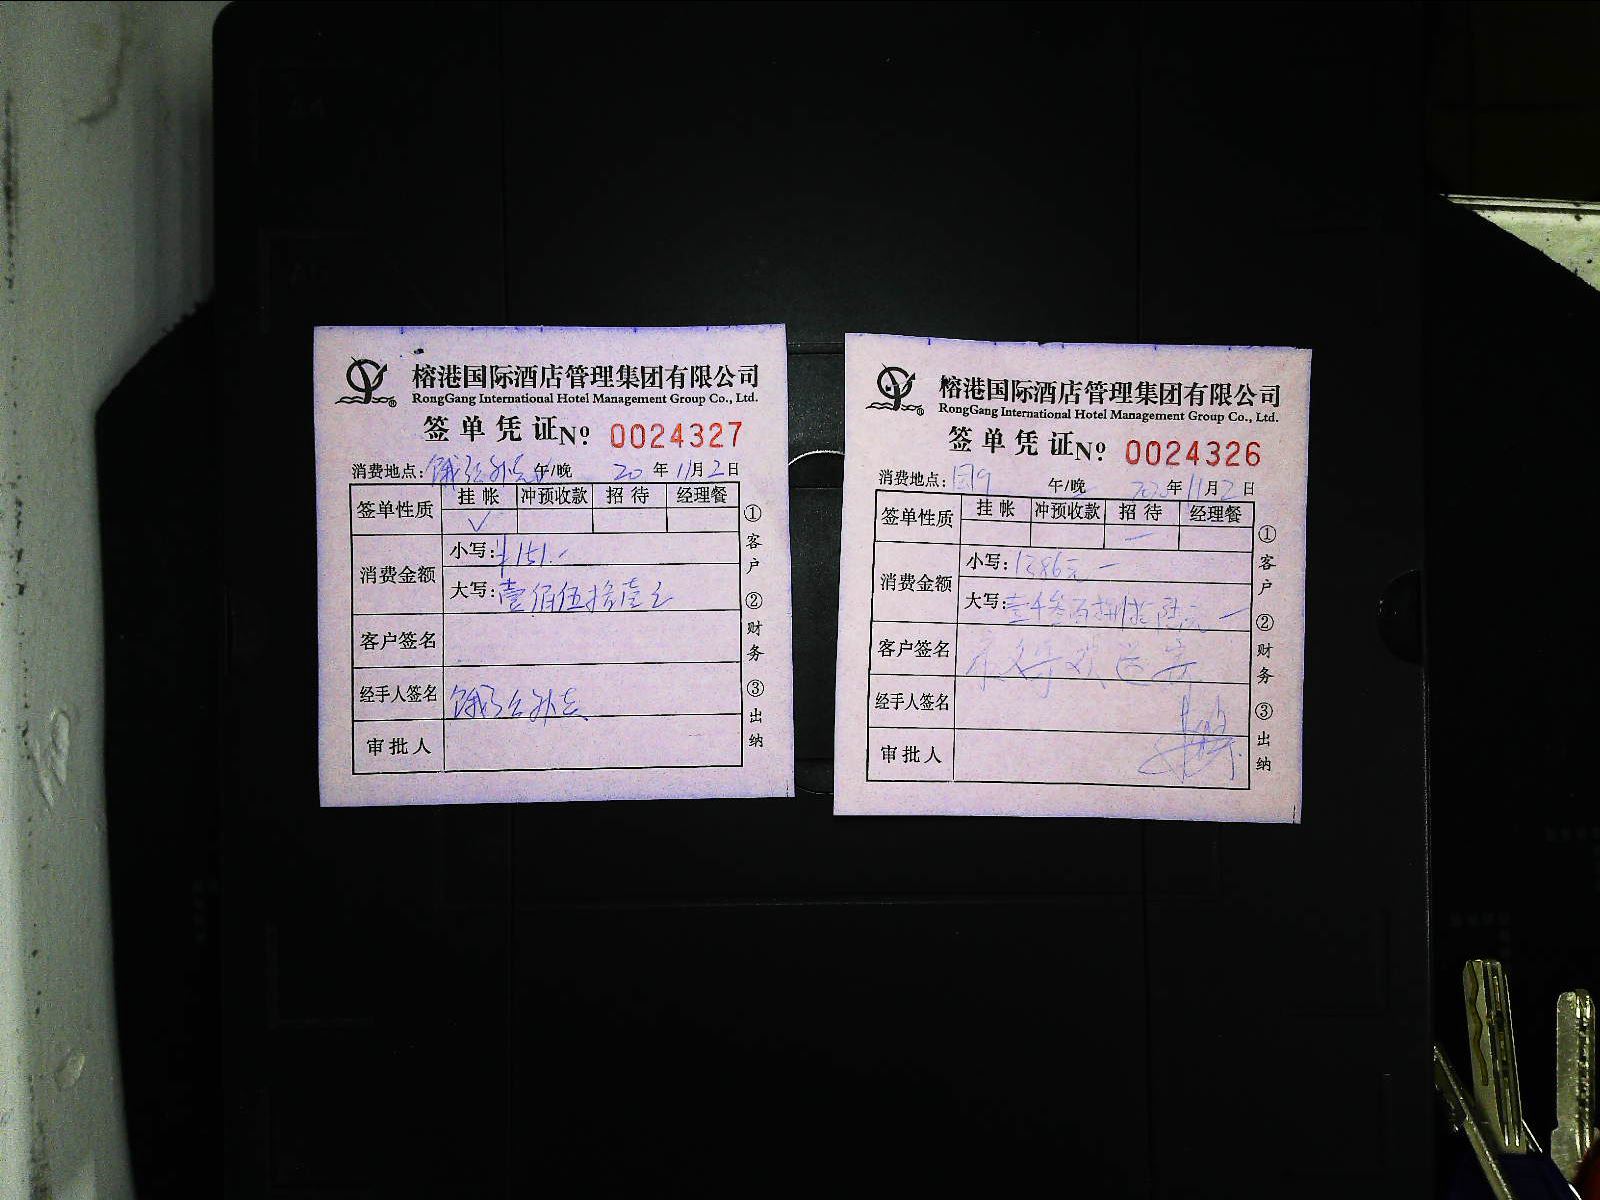 榕港国际酒店管理集团有限公司
RongGang International Hotel Management Group Co., Ltd.
签单凭证 No: 0024327
消费地点: 午/晚 20年11月2日
签单性质 挂帐 冲预收款 招待 经理餐
✓
消费金额
小写: ¥151.-
大写: 壹佰伍拾壹元
客户签名
经手人签名
审批人
①客户 ②财务 ③出纳
榕港国际酒店管理集团有限公司
RongGang International Hotel Management Group Co., Ltd.
签单凭证 No: 0024326
消费地点: 午/晚 2020年11月2日
签单性质 挂帐 冲预收款 招待 经理餐
消费金额
小写: 1386元
大写: 壹仟叁百捌拾陆元
客户签名
经手人签名
审批人
①客户 ②财务 ③出纳